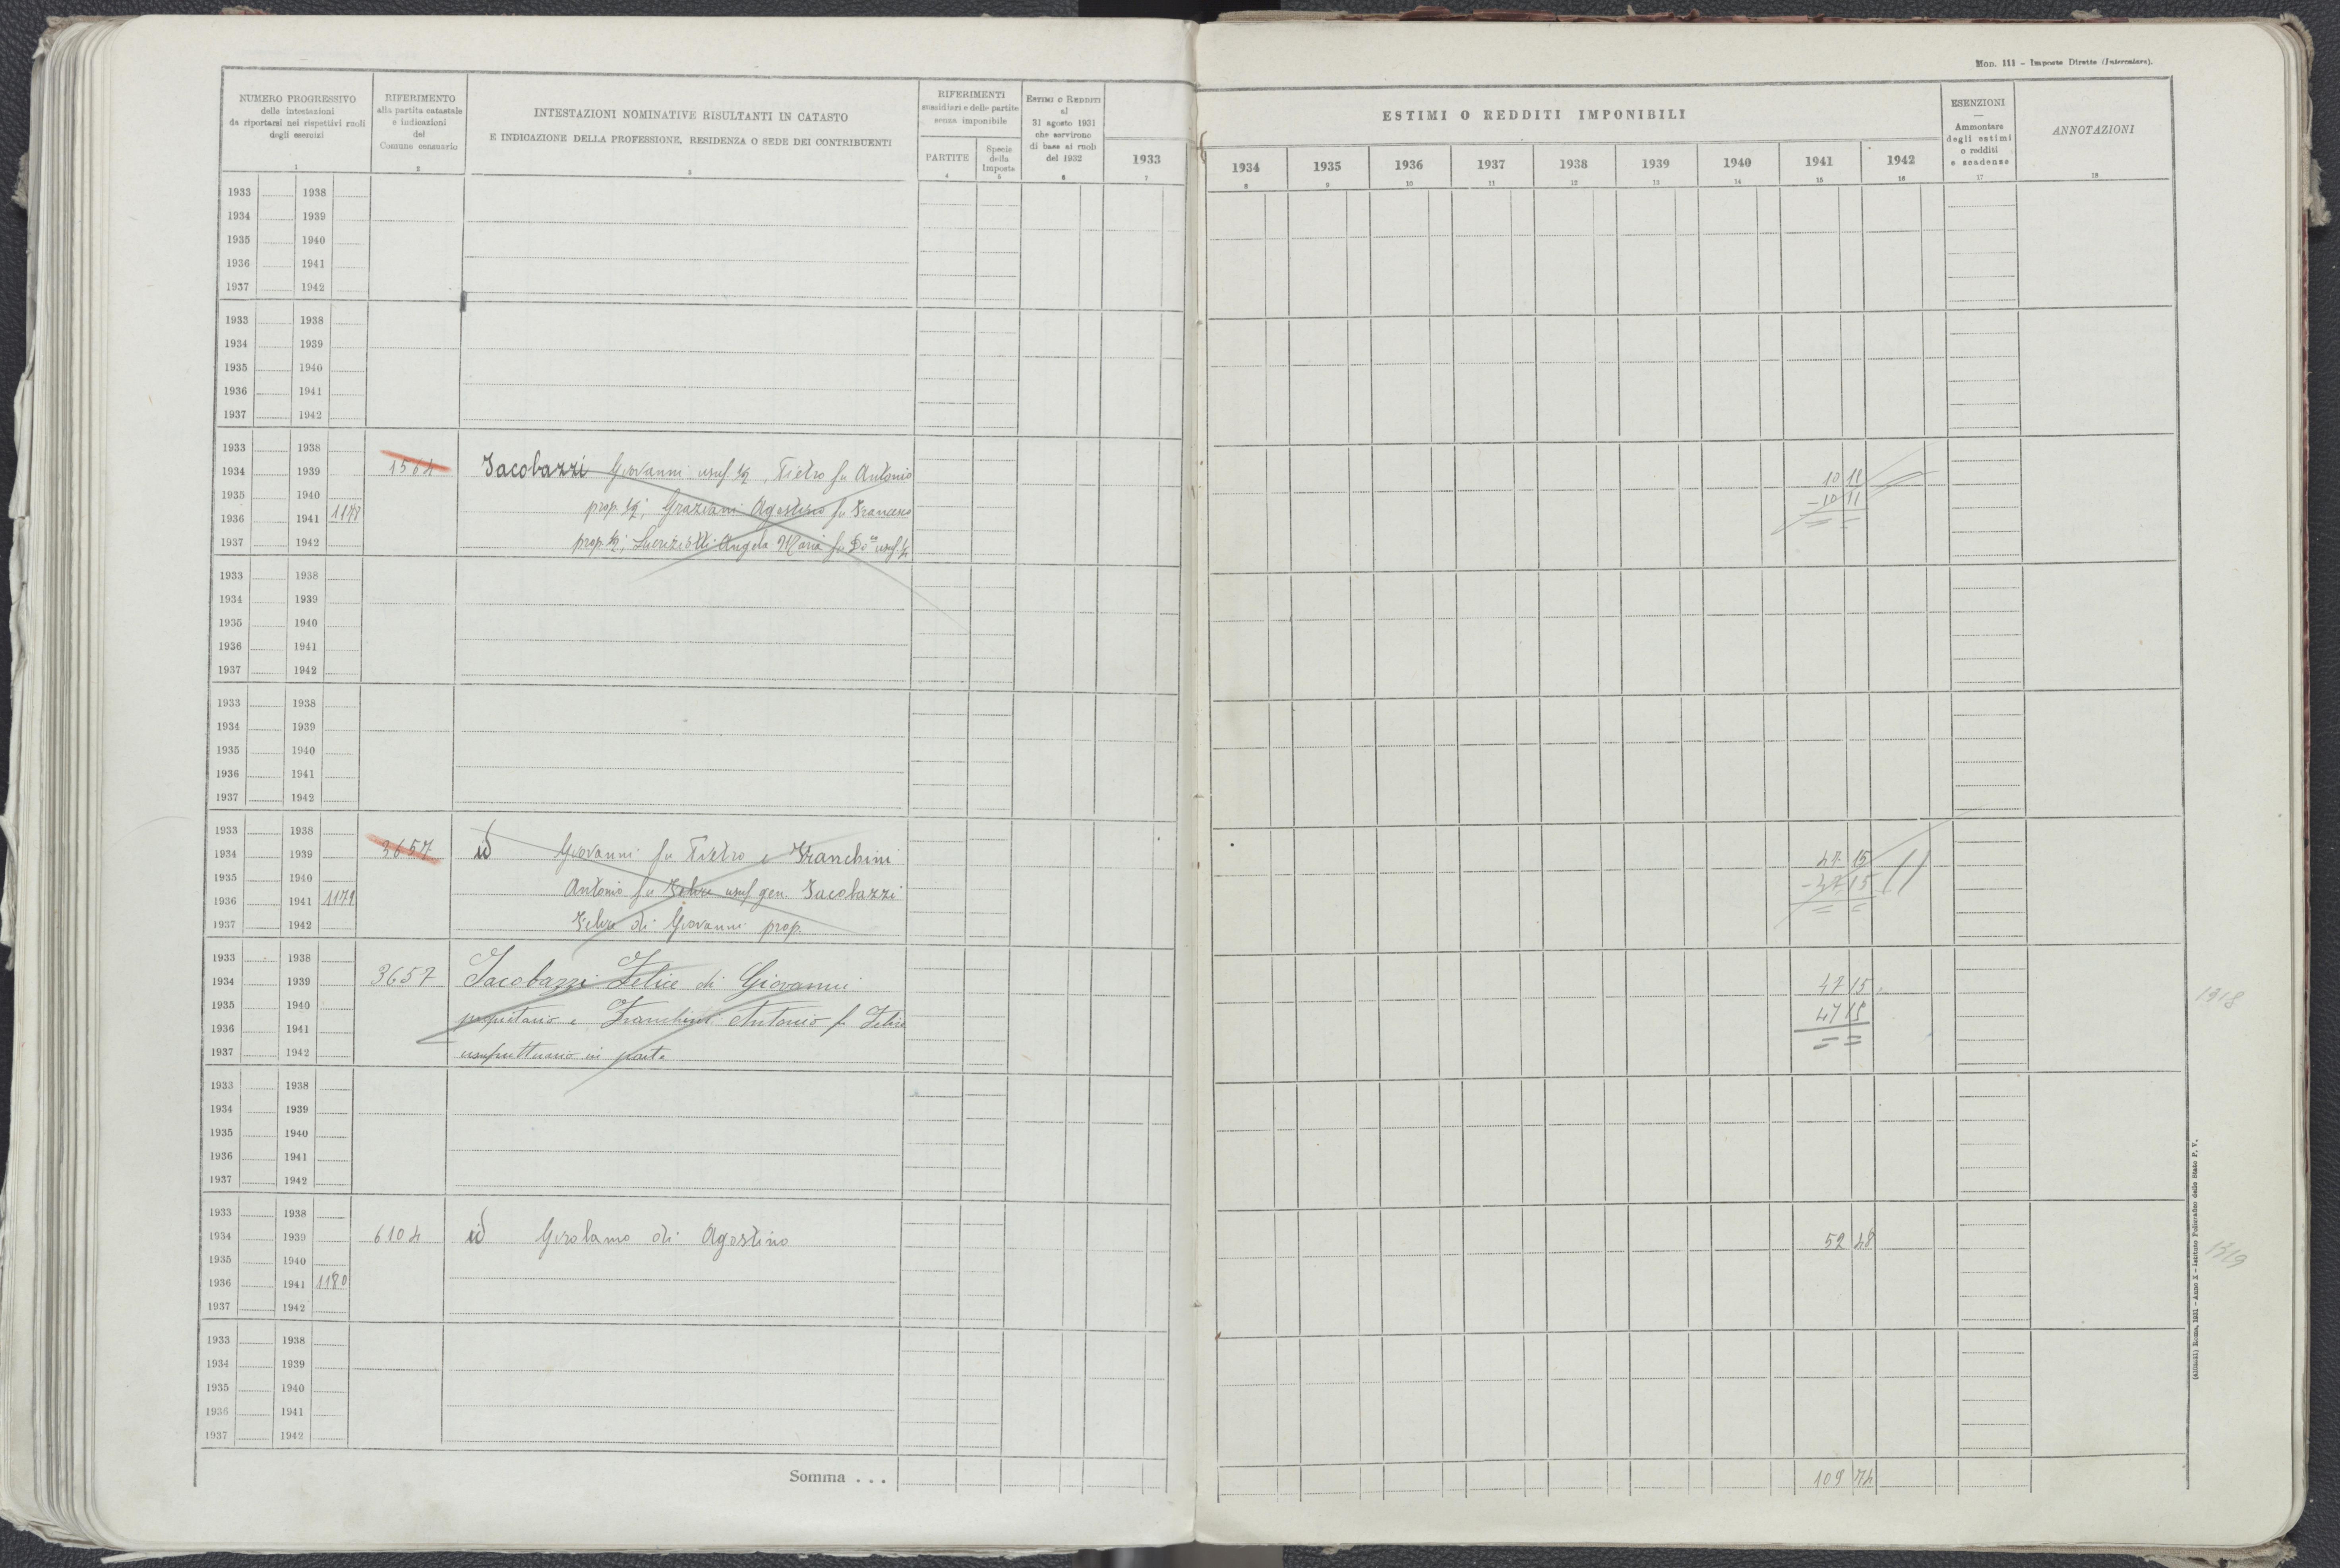 Mod. 111 - Imposte Dirette (Intercalare).
NUMERO PROGRESSIVO
delle intestazioni
da riportarsi nei rispettivi ruoli
degli esercizi
1
RIFERIMENTO
alla partita catastale
e indicazioni
del
Comune censuario
2
INTESTAZIONI NOMINATIVE RISULTANTI IN CATASTO
E INDICAZIONE DELLA PROFESSIONE, RESIDENZA O SEDE DEI CONTRIBUENTI
3
RIFERIMENTI
sussidiari e delle partite
senza imponibile
PARTITE
4
Specie
della
Imposta
5
ESTIMI O REDDITI
al
31 agosto 1931
che servirono
di base ai ruoli
del 1932
6
1933
7
ESTIMI O REDDITI IMPONIBILI
1934 1935 1936 1937 1938 1939 1940 1941 1942
8 9 10 11 12 13 14 15 16
ESENZIONI
Ammontare
degli estimi
o redditi
e scadenze
17
ANNOTAZIONI
18
1933 1938
1934 1939
1935 1940
1936 1941
1937 1942
1933 1938
1934 1939
1935 1940
1936 1941
1937 1942
1933 1938
1934 1939 1564 Iacobazzi Giovanni usuf. ½, Pietro fu Antonio 10 11
1935 1940 - 10 11
1936 1941 1178 prop. ½; Graziani Agostino fu Francesco
1937 1942 prop. ½; Lucreziotti Angela Maria fu Do.co usuf. ½
1933 1938
1934 1939
1935 1940
1936 1941
1937 1942
1933 1938
1934 1939
1935 1940
1936 1941
1937 1942
1933 1938
1934 1939 3657 id Giovanni fu Pietro e Franchini 47 15
1935 1940 - 47 15
1936 1941 1179 Antonio fu Felice usuf gen. Iacobazzi
1937 1942 Felice di Giovanni prop.
1933 1938
1934 1939 3657 Iacobazzi Felice di Giovanni 47 15
1318
1935 1940 47 15
1936 1941 proprietario e Franchini Antonio fu Felice
1937 1942 usufruttuario in parte
1933 1938
1934 1939
1935 1940
1936 1941
1937 1942
1933 1938
1934 1939 6104 id Girolamo di Agostino 52 48
1319
1935 1940
1936 1941 1180
1937 1942
1933 1938
1934 1939
1935 1940
1936 1941
1937 1942
Somma . . . 109 74
Roma, 1931 - Anno X - Istituto Poligrafico dello Stato P. V.